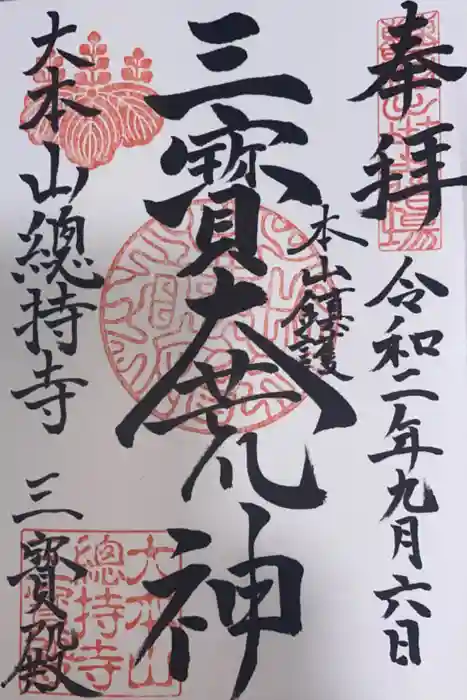 奉拝
令和二年九月六日
本山鎮護
三寳大荒神
大本山總持寺 三寳殿
大本山
總持寺